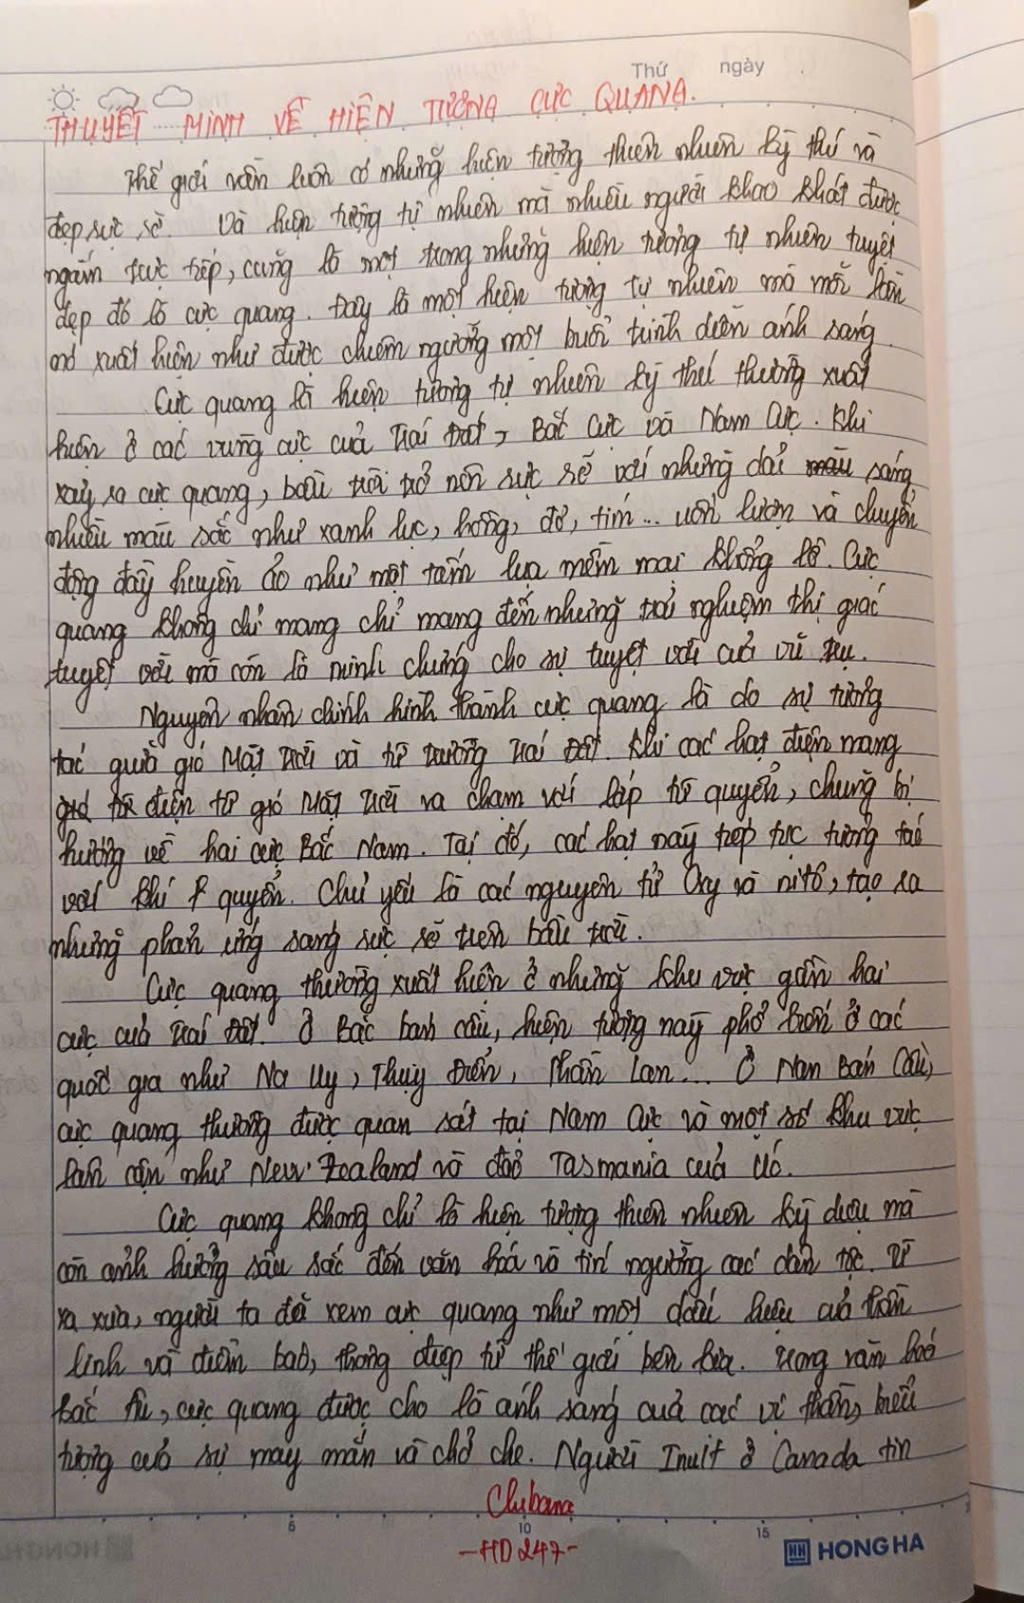 Thứ ngày
THUYẾT MINH VỀ HIỆN TƯỢNG CỰC QUANG.
Thế giới vẫn luôn có những hiện tượng thiên nhiên kỳ thú và
đẹp sực sỡ. Và hiện tượng tự nhiên mà nhiều người khao khát được
ngắm trực tiếp, cũng là một trong những hiện tượng tự nhiên tuyệt
đẹp đó là cực quang. Đây là một hiện tượng tự nhiên mà mỗi lần
nó xuất hiện như được chiêm ngưỡng một buổi trình diễn ánh sáng.
Cực quang là hiện tượng tự nhiên kỳ thú thường xuất
hiện ở các vùng cực của Trái Đất, Bắt Cực và Nam Cực. Khi
xảy ra cực quang, bầu trời trở nên sực sỡ với những dải sáng
nhiều màu sắc như xanh lục, hồng, đỏ, tím... uốn lượn và chuyển
động đầy huyền ảo như một tấm lụa mềm mại khổng lồ. Cực
quang không chỉ mang chỉ mang đến những trải nghiệm thị giác
tuyệt vời mà còn là minh chứng cho sự tuyệt vời của vũ trụ.
Nguyên nhân chính hình thành cực quang là do sự tương
tác giữa gió Mặt Trời và từ trường Trái Đất. Khi các hạt điện mang
điện từ gió Mặt Trời va chạm với lớp từ quyển, chúng bị
hướng về hai cực Bắc Nam. Tại đó, các hạt này tiếp tục tương tác
với khí quyển. Chủ yếu là các nguyên tử Oxy và nitơ, tạo ra
những phản ứng sáng sực sỡ trên bầu trời.
Cực quang thường xuất hiện ở những khu vực gần hai
cực của Trái Đất. Ở Bắc bán cầu, hiện tượng này phổ biến ở các
quốc gia như Na Uy, Thụy Điển, Phần Lan... Ở Nam Bán Cầu,
cực quang thường được quan sát tại Nam Cực và một số khu vực
lân cận như New Zealand và đảo Tasmania của Úc.
Cực quang không chỉ là hiện tượng thiên nhiên kỳ diệu mà
còn ảnh hưởng sâu sắc đến văn hoá và tín ngưỡng các dân tộc. Từ
xa xưa, người ta đã xem cực quang như một dấu hiệu của thần
linh và điềm báo, thông điệp từ thế giới bên kia. Trong văn hoá
Bắc Âu, cực quang được cho là ánh sáng của các vị thần, biểu
tượng của sự may mắn và chở che. Người Inuit ở Canada tin
-HD247-
5 10 15
HONG HA